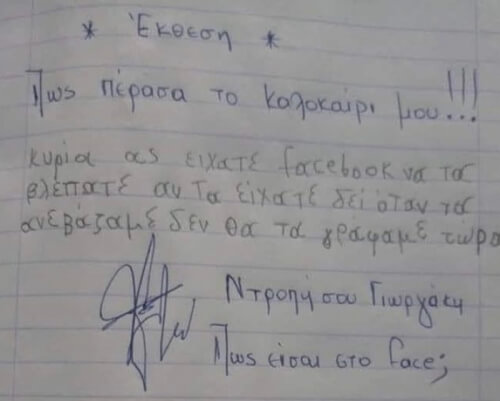 * Έκθεση *
Πως πέρασα το καλοκαίρι μου...!!!
κυρία ας ειχατε facebook να τα
βλέπατε αν τα είχατε δει όταν τα
ανεβάζαμε δεν θα τα γραφαμε τώρα
Ντροπή σου Γιωργάκη
Πως είσαι στο face;